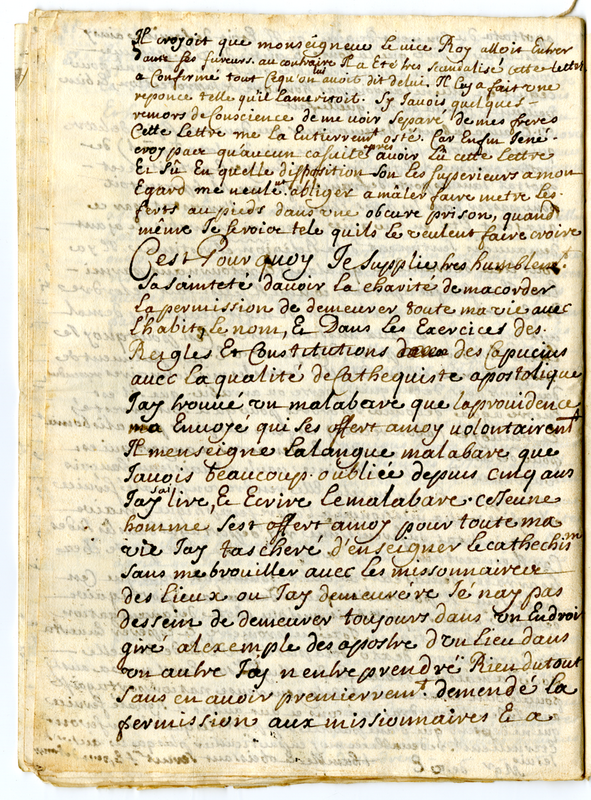 Il croyoit que monseigneur le vice Roy alloit Entrer
dans ses fureurs. au contraire Il a Eté tres scandalisé cette lettre
a Confirmé tout cequ'on luy avoit dit delui. Il luy a fait vne
reponce telle quil lameritoit. Sy Javois quelques
remors de Conscience de me voir separé de mes freres
Cette Lettre me la Entierrem.t osté. Car Enfin Jené
croy par qu'aucun casuite apres avoir Lû cette Lettre
Et Sû En quelle disposition son les superieurs a mon
Egard me veule.nt obliger a mâler faire metre les
ferts au pieds dans vne obcure prison, quand
même Je serois tele quils le veulent faire croire
C'est Pourquoy Je supplie tres humblem.t
Sa sainteté d'avoir la charité de macorder
la permission de demeurer toute ma vie avec
L'habit, le nom, Et Dans les Exercices des
Reigles Et Constitutions des Capucins
avec la qualité de Cathequiste apostolique
Jay trouvé vn malabare que la providence
ma Envoyé qui ses offert a moy volontairem.t
Il menseigne Lalangue malabare que
Javois beaucoup oubliée depuis cinq ans
Jay sai lire, Et Ecrire Lemalabare. ce Jeune
homme sest offert amoy pour toute ma
vie Jay tascheré d'enseigner le cathechis.m
sans me brouiller avec les missonnaires
des Lieux ou Jay demeurére Jé nay pas
dessein de demeurer toujours dans vn Endroi
giré al exemple des apostre d'vn Lieu dans
vn autre Jay n'entreprendré Rien du tout
sans en avoir premierrem.t demendé la
permission aux missionnaires E a